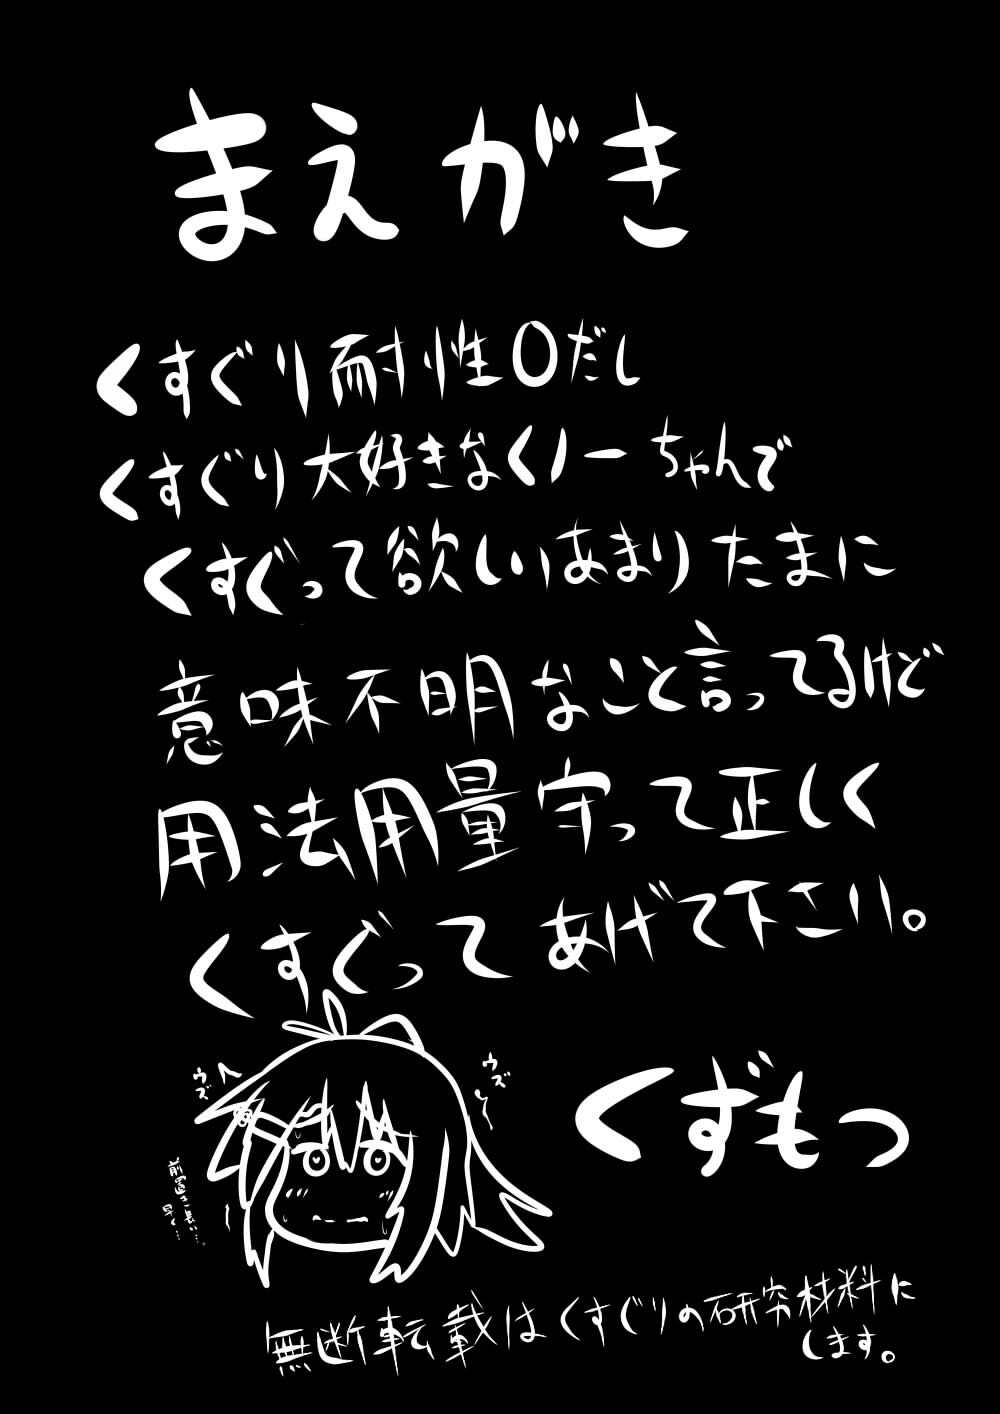 まえがき
くすぐり耐性0だし
くすぐり大好きなくノーちゃんで
くすぐって欲しいあまりたまに
意味不明なこと言ってるけど
用法用量守って正しく
くすぐってあげて下こい。
ウズ
ウズ
前置き長い…。
早く…
くずもつ
無断転載はくすぐりの研究材料に
します。